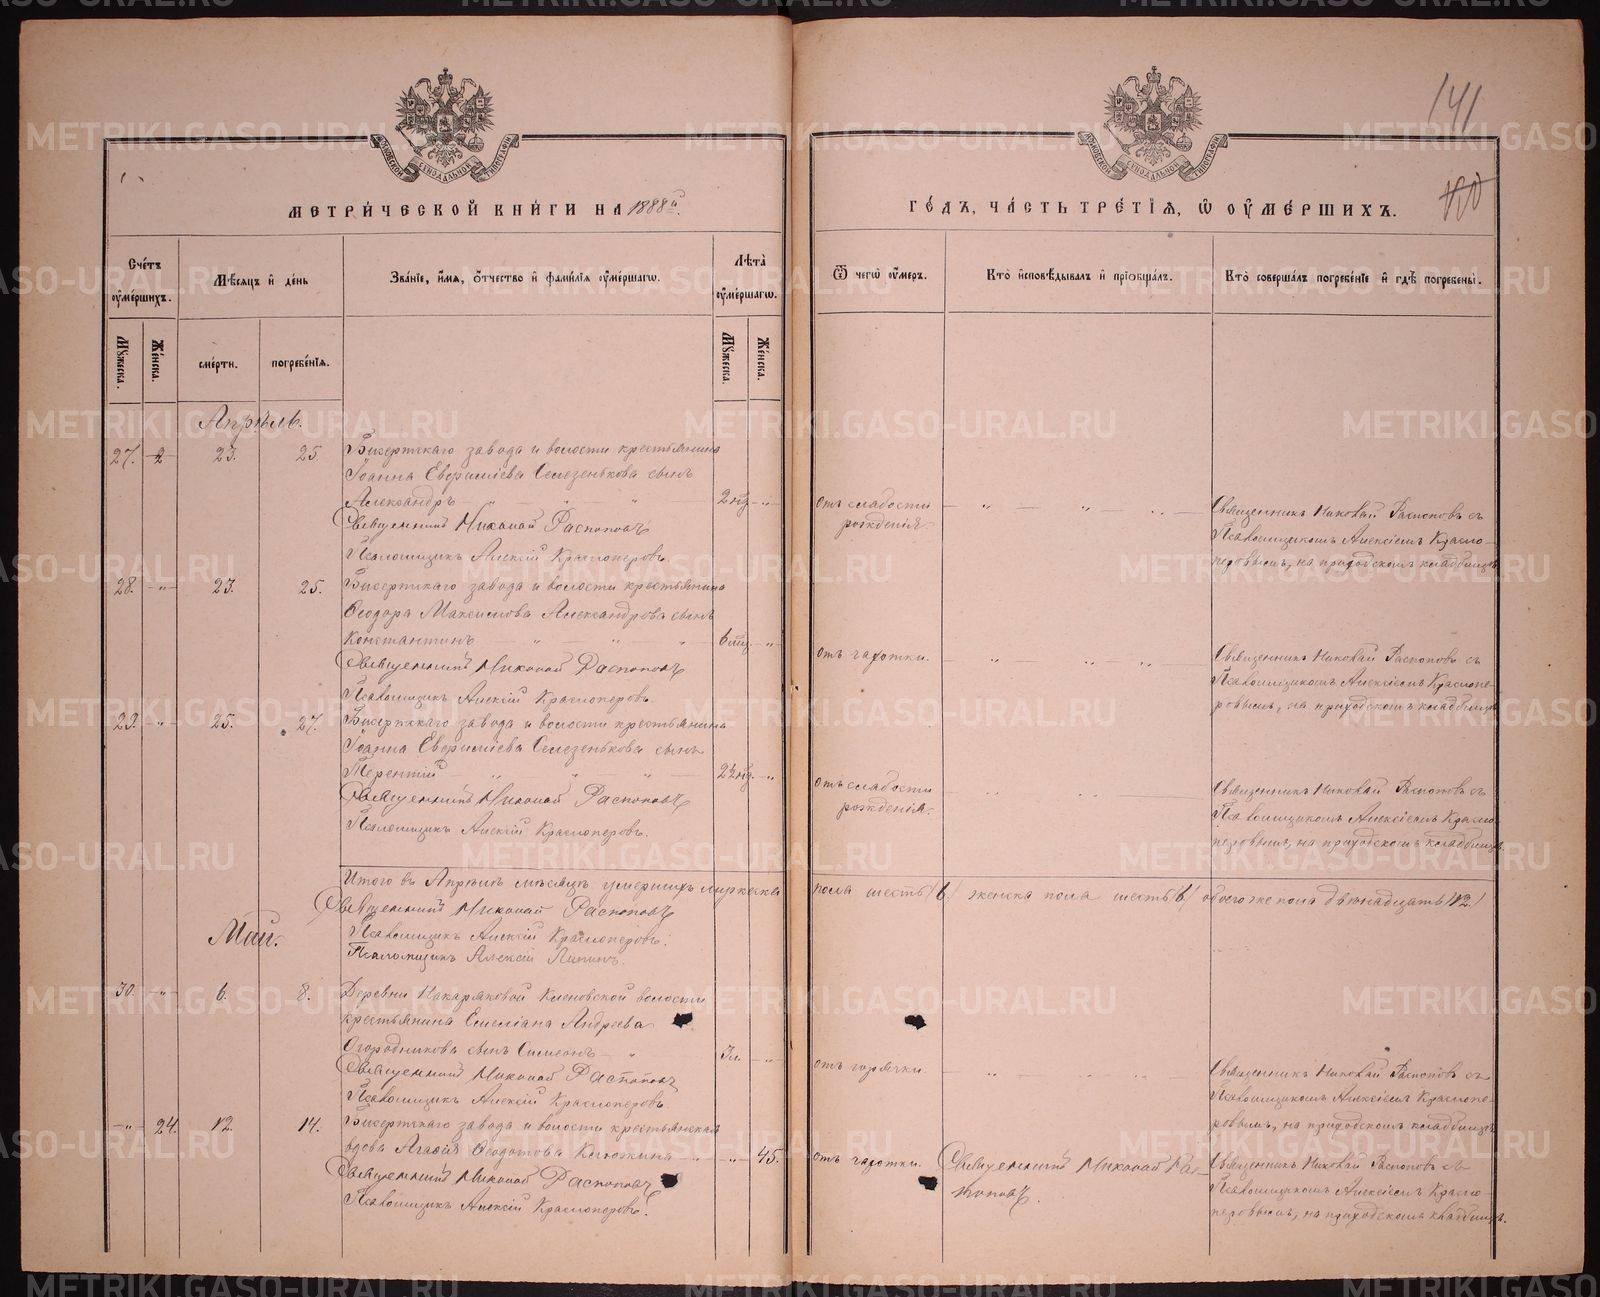 МЕТРИЧЕСКОЙ КНИГИ НА 1888й
Счетъ оумершихъ.
Мѣсяцъ и день
Званіе, имя, отчество и фамилія оумершагѡ.
Лѣта оумершагѡ.
Мужеска.
Женска.
смерти.
погребенія.
Мужеска.
Женска.
Апрѣль.
27. 23. 25. Бисертскаго завода и волости крестьянина
Іоанна Евфиміева Селезенькова сынъ
Александръ 2 нд.
Священникъ Николай Распоповъ
Псаломщикъ Алексій Красноперовъ.
28. 23. 25. Бисертскаго завода и волости крестьянина
Ѳеодора Максимова Александрова сынъ
Константинъ 6 мц.
Священникъ Николай Распоповъ
Псаломщикъ Алексій Красноперовъ.
29. 25. 27. Бисертскаго завода и волости крестьянина
Іоанна Евфиміева Селезенькова сынъ
Терентій
Священникъ Николай Распоповъ
Псаломщикъ Алексій Красноперовъ.
Итого въ Апрѣлѣ мѣсяцѣ умершихъ мужеска
Священникъ Николай Распоповъ
Псаломщикъ Алексій Красноперовъ.
Псаломщикъ Алексій
Май.
30. 6. 8. Деревни Накаряковой Кленовской волости
крестьянина Емеліана Андреева
Огородникова сынъ Симеонъ 3 л.
Священникъ Николай Распоповъ
Псаломщикъ Алексій Красноперовъ.
24. 12. 14. Бисертскаго завода и волости крестьянская
вдова Агафія Ѳедотова 45.
Священникъ Николай Распоповъ
Псаломщикъ Алексій Красноперовъ.
141
ГОДЪ, ЧАСТЬ ТРЕТІЯ, Ѡ ОУМЕРШИХЪ.
Ѿ чегѡ оумеръ.
Кто исповѣдывалъ и пріобщалъ.
Кто совершалъ погребеніе и гдѣ погребены.
отъ слабости
рожденія.
Священникъ Николай Распоповъ съ
Псаломщикомъ Алексіемъ Красно-
перовымъ, на приходскомъ кладбищѣ
отъ чахотки.
Священникъ Николай Распоповъ съ
Псаломщикомъ Алексіемъ Краснопе-
ровымъ, на приходскомъ кладбищѣ
отъ слабости
рожденія.
Священникъ Николай Распоповъ съ
Псаломщикомъ Алексіемъ Красно-
перовымъ, на приходскомъ кладбищѣ.
пола шесть /6/ женска пола шесть /6/ обоего же пола двѣнадцать /12./
отъ горячки.
Священникъ Николай Распоповъ съ
Псаломщикомъ Алексіемъ Краснопе-
ровымъ, на приходскомъ кладбищѣ
отъ чахотки.
Священникъ Николай Рас-
поповъ.
Священникъ Николай Распоповъ съ
Псаломщикомъ Алексіемъ Красно-
перовымъ, на приходскомъ кладбищѣ.
METRIKI.GASO-URAL.RU